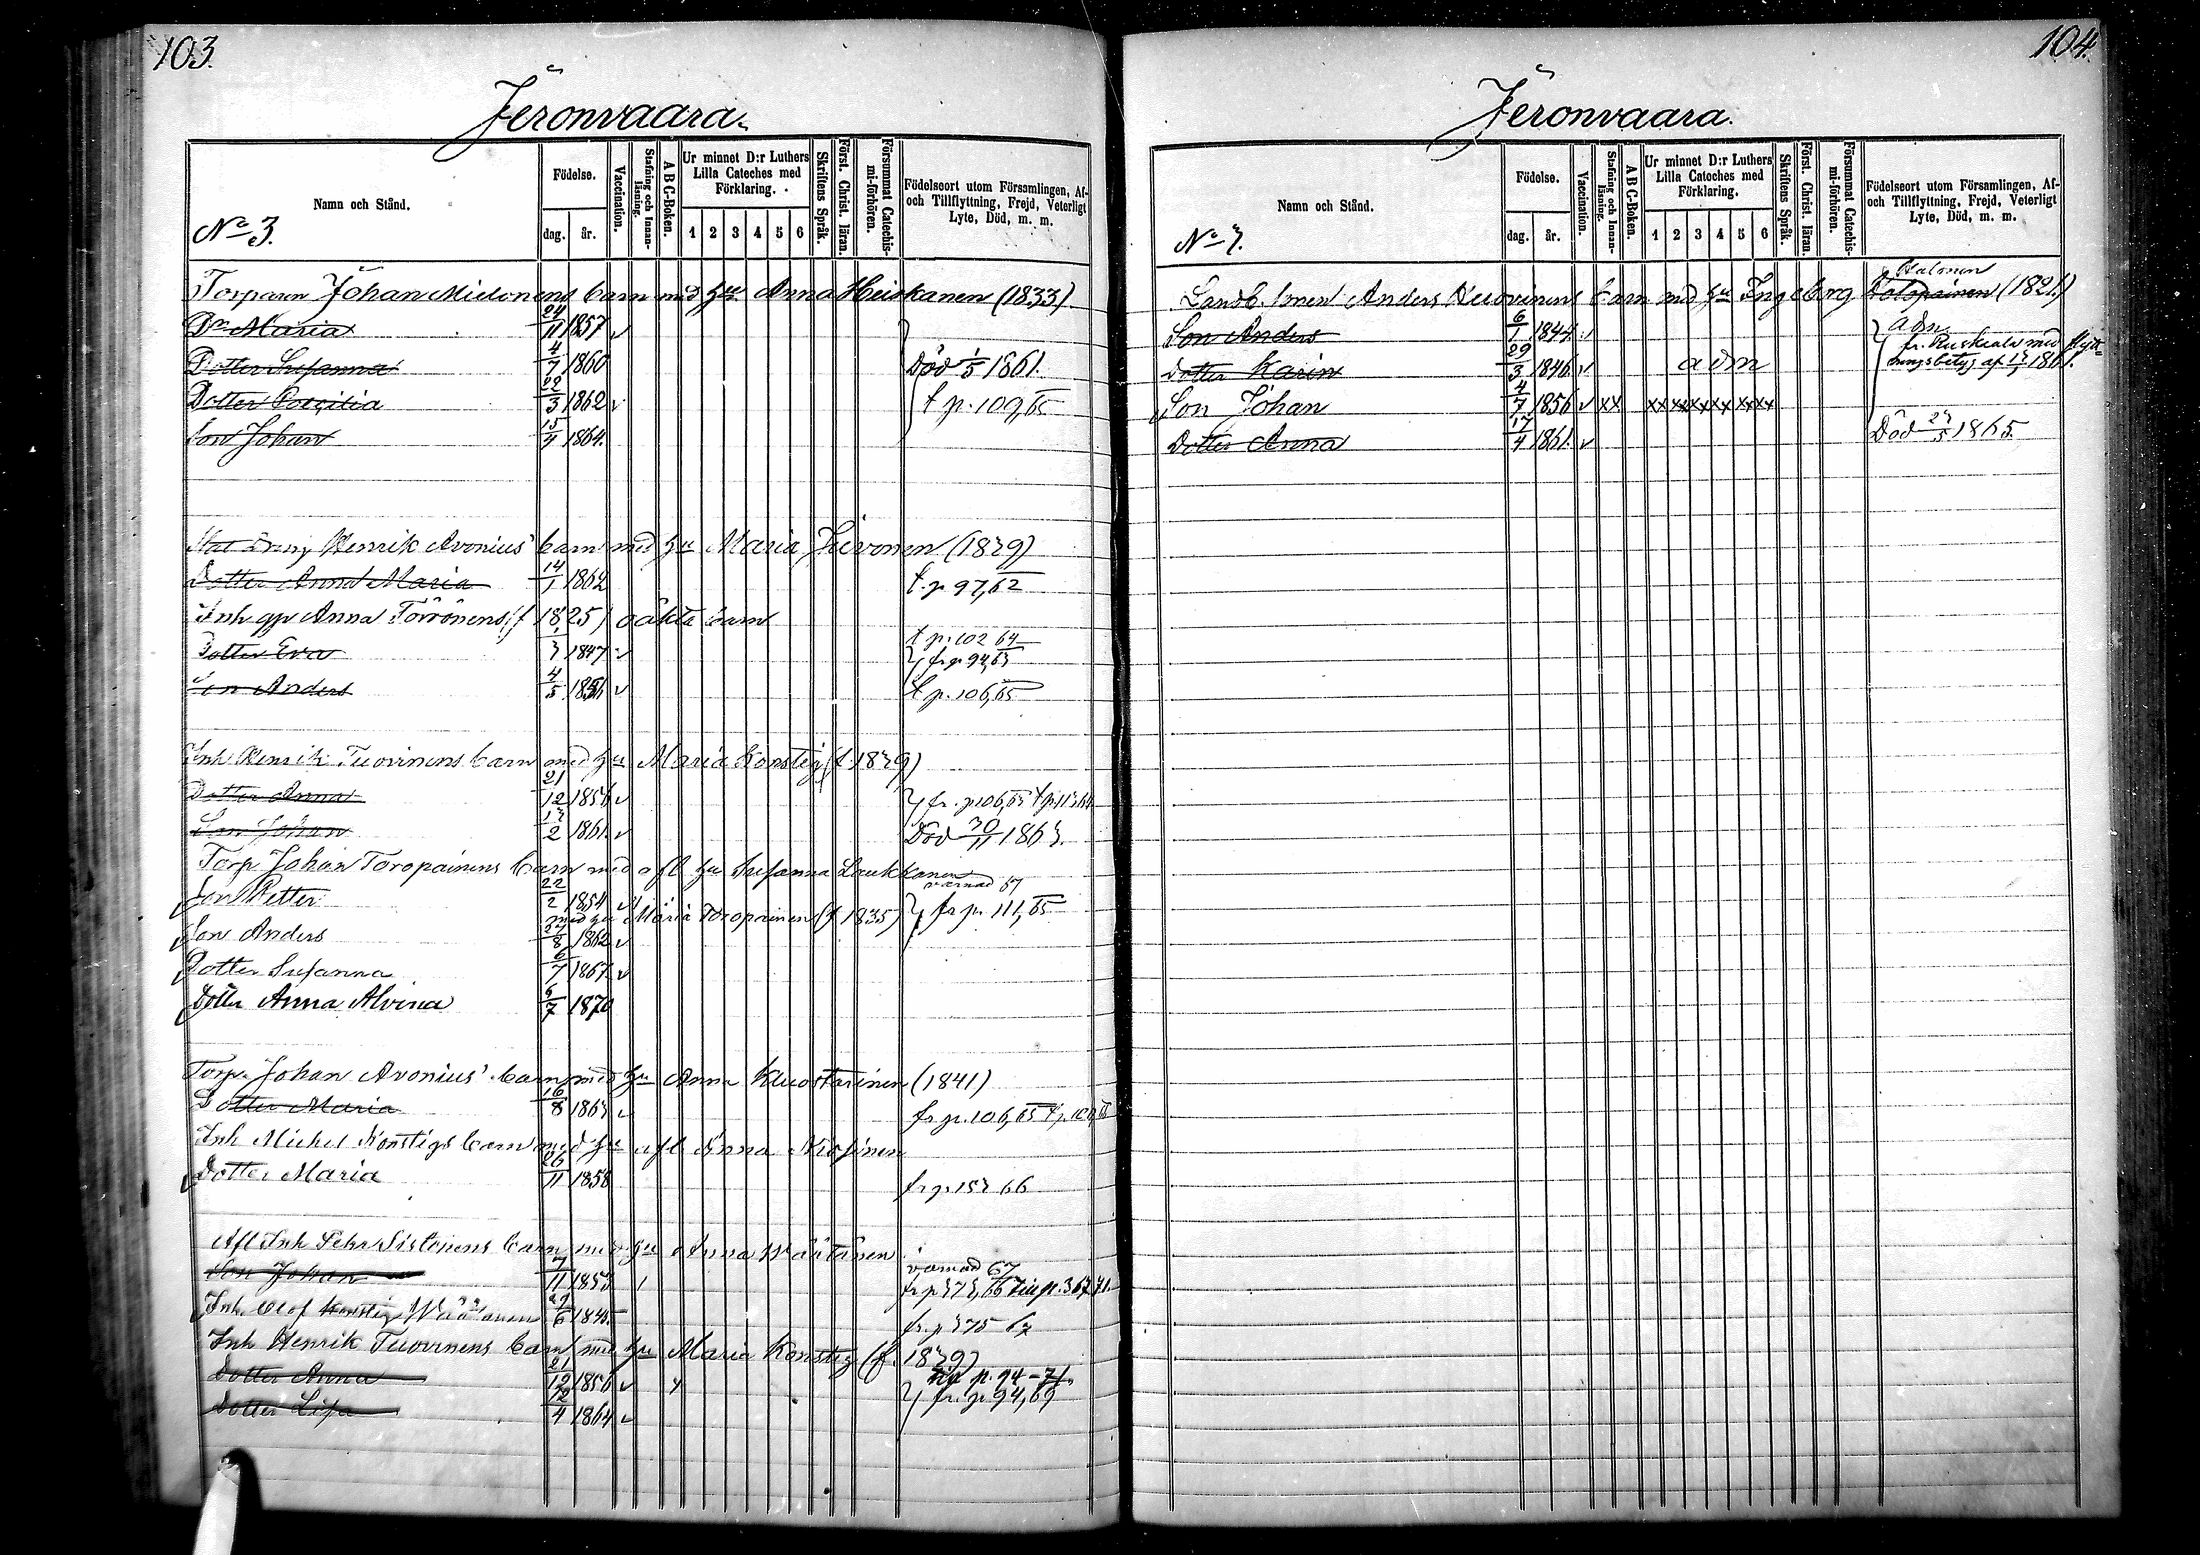 103.
Jeronvaara.
Namn och Stånd.
Födelse.
dag.
år.
Vaccination.
Stafning och Innanläsning.
A B C-Boken.
Ur minnet D:r Luthers Lilla Cateches med Förklaring.
1 2 3 4 5 6
Skriftens Språk.
Först. Christ. läran.
Försummat Catechismi-förhören.
Födelseort utom Församlingen, Af- och Tillflyttning, Frejd, Veterligt Lyte, Död, m. m.
No 3.
Torparen Johan Mielonens barn med hu Anna Heiskanen (1833)
Dr Maria 24/11 1857 v
Dotter Susanna 4/7 1860 Död 1/5 1861.
Dotter Coecilia 22/3 1862 v t p. 109, 65
Son Johan 15/4 1864.
Dräng Henrik Avonius' barn med hu Maria Hirvonen (1839)
Dotter Anna Maria 14/1 1862 t. p 97, 62
Inh Anna Törrönens (f 1825) oäkta barn
t p. 102 64
Dotter Eva 3 1847 v fr p 94, 63
Son Anders 4/5 1856 v t p. 106, 65
Inh Henrik Tuovinens barn med hu Maria Konstig (f. 1839)
Dotter Anna 21/12 1856 v fr. p 106, 65
Son Johan 13/2 1861. v Död 30/11 1863.
Torp. Johan Toropainens barn med afl hu Susanna Laukkanen
Son Petter 22/2 1854 v fr p. 111, 65
med hu Maria Toropainen (f 1835)
Son Anders 27/8 1862 v
Dotter Susanna 6/7 1867. v
Dotter Anna Alvina 6/7 1870
Torp. Johan Avonius' barn med hu Anna Kuostarinen (1841)
Dotter Maria 16/8 1863 v fr p. 106, 65
Inh Michel Konstigs barn med hu afl Anna
Dotter Maria 26/11 1858 fr p 153 66
Afl Inh Pehr Sistonens barn med hu Anna Väätänen
Son Johan 7/11 1853 fr p 373, 66
Inh. Olof Konstig Väätänen 29/6 1845 fr. p 375 67
Inh Henrik Tuovinens barn med hu Maria Konstig (f. 1839)
p. 94-71.
Dotter Anna 21/12 1856 v fr. p. 94, 69
Dotter Lisa 12/4 1864 v
104.
Jeronvaara.
Namn och Stånd.
Födelse.
dag.
år.
Vaccination.
Stafning och Innanläsning.
A B C-Boken.
Ur minnet D:r Luthers Lilla Cateches med Förklaring.
1 2 3 4 5 6
Skriftens Språk.
Först. Christ. läran.
Försummat Catechismi-förhören.
Födelseort utom Församlingen, Af- och Tillflyttning, Frejd, Veterligt Lyte, Död, m. m.
No 3.
Halonen
Landb. Anders Nuovinens barn med hu Ingeborg (1821.)
Son Anders 6/1 1844. v adm
fr. Ruskiala med flytt
Dotter Karin 29/3 1846. v adm
Son Johan 4/7 1856 v xx xx xx xx xx xx
Dotter Anna 17/4 1861. v Död 23/5 1865.